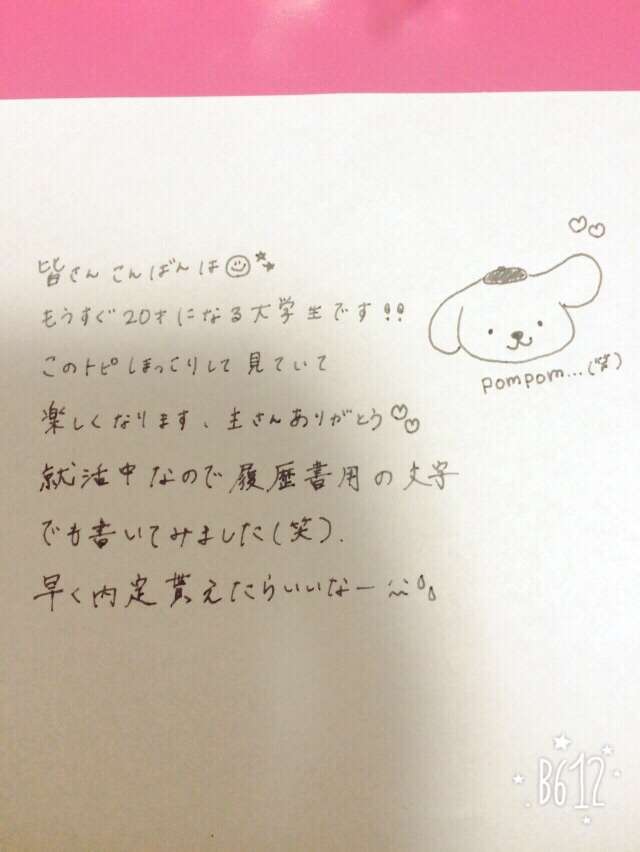 皆さんこんばんは☺
もうすぐ20才になる大学生です!!
このトピほっこりして見ていて
楽しくなります、主さんありがとう♡♡
就活中なので履歴書用の文字
でも書いてみました(笑).
早く内定貰えたらいいなー
pompom...(笑)
B612